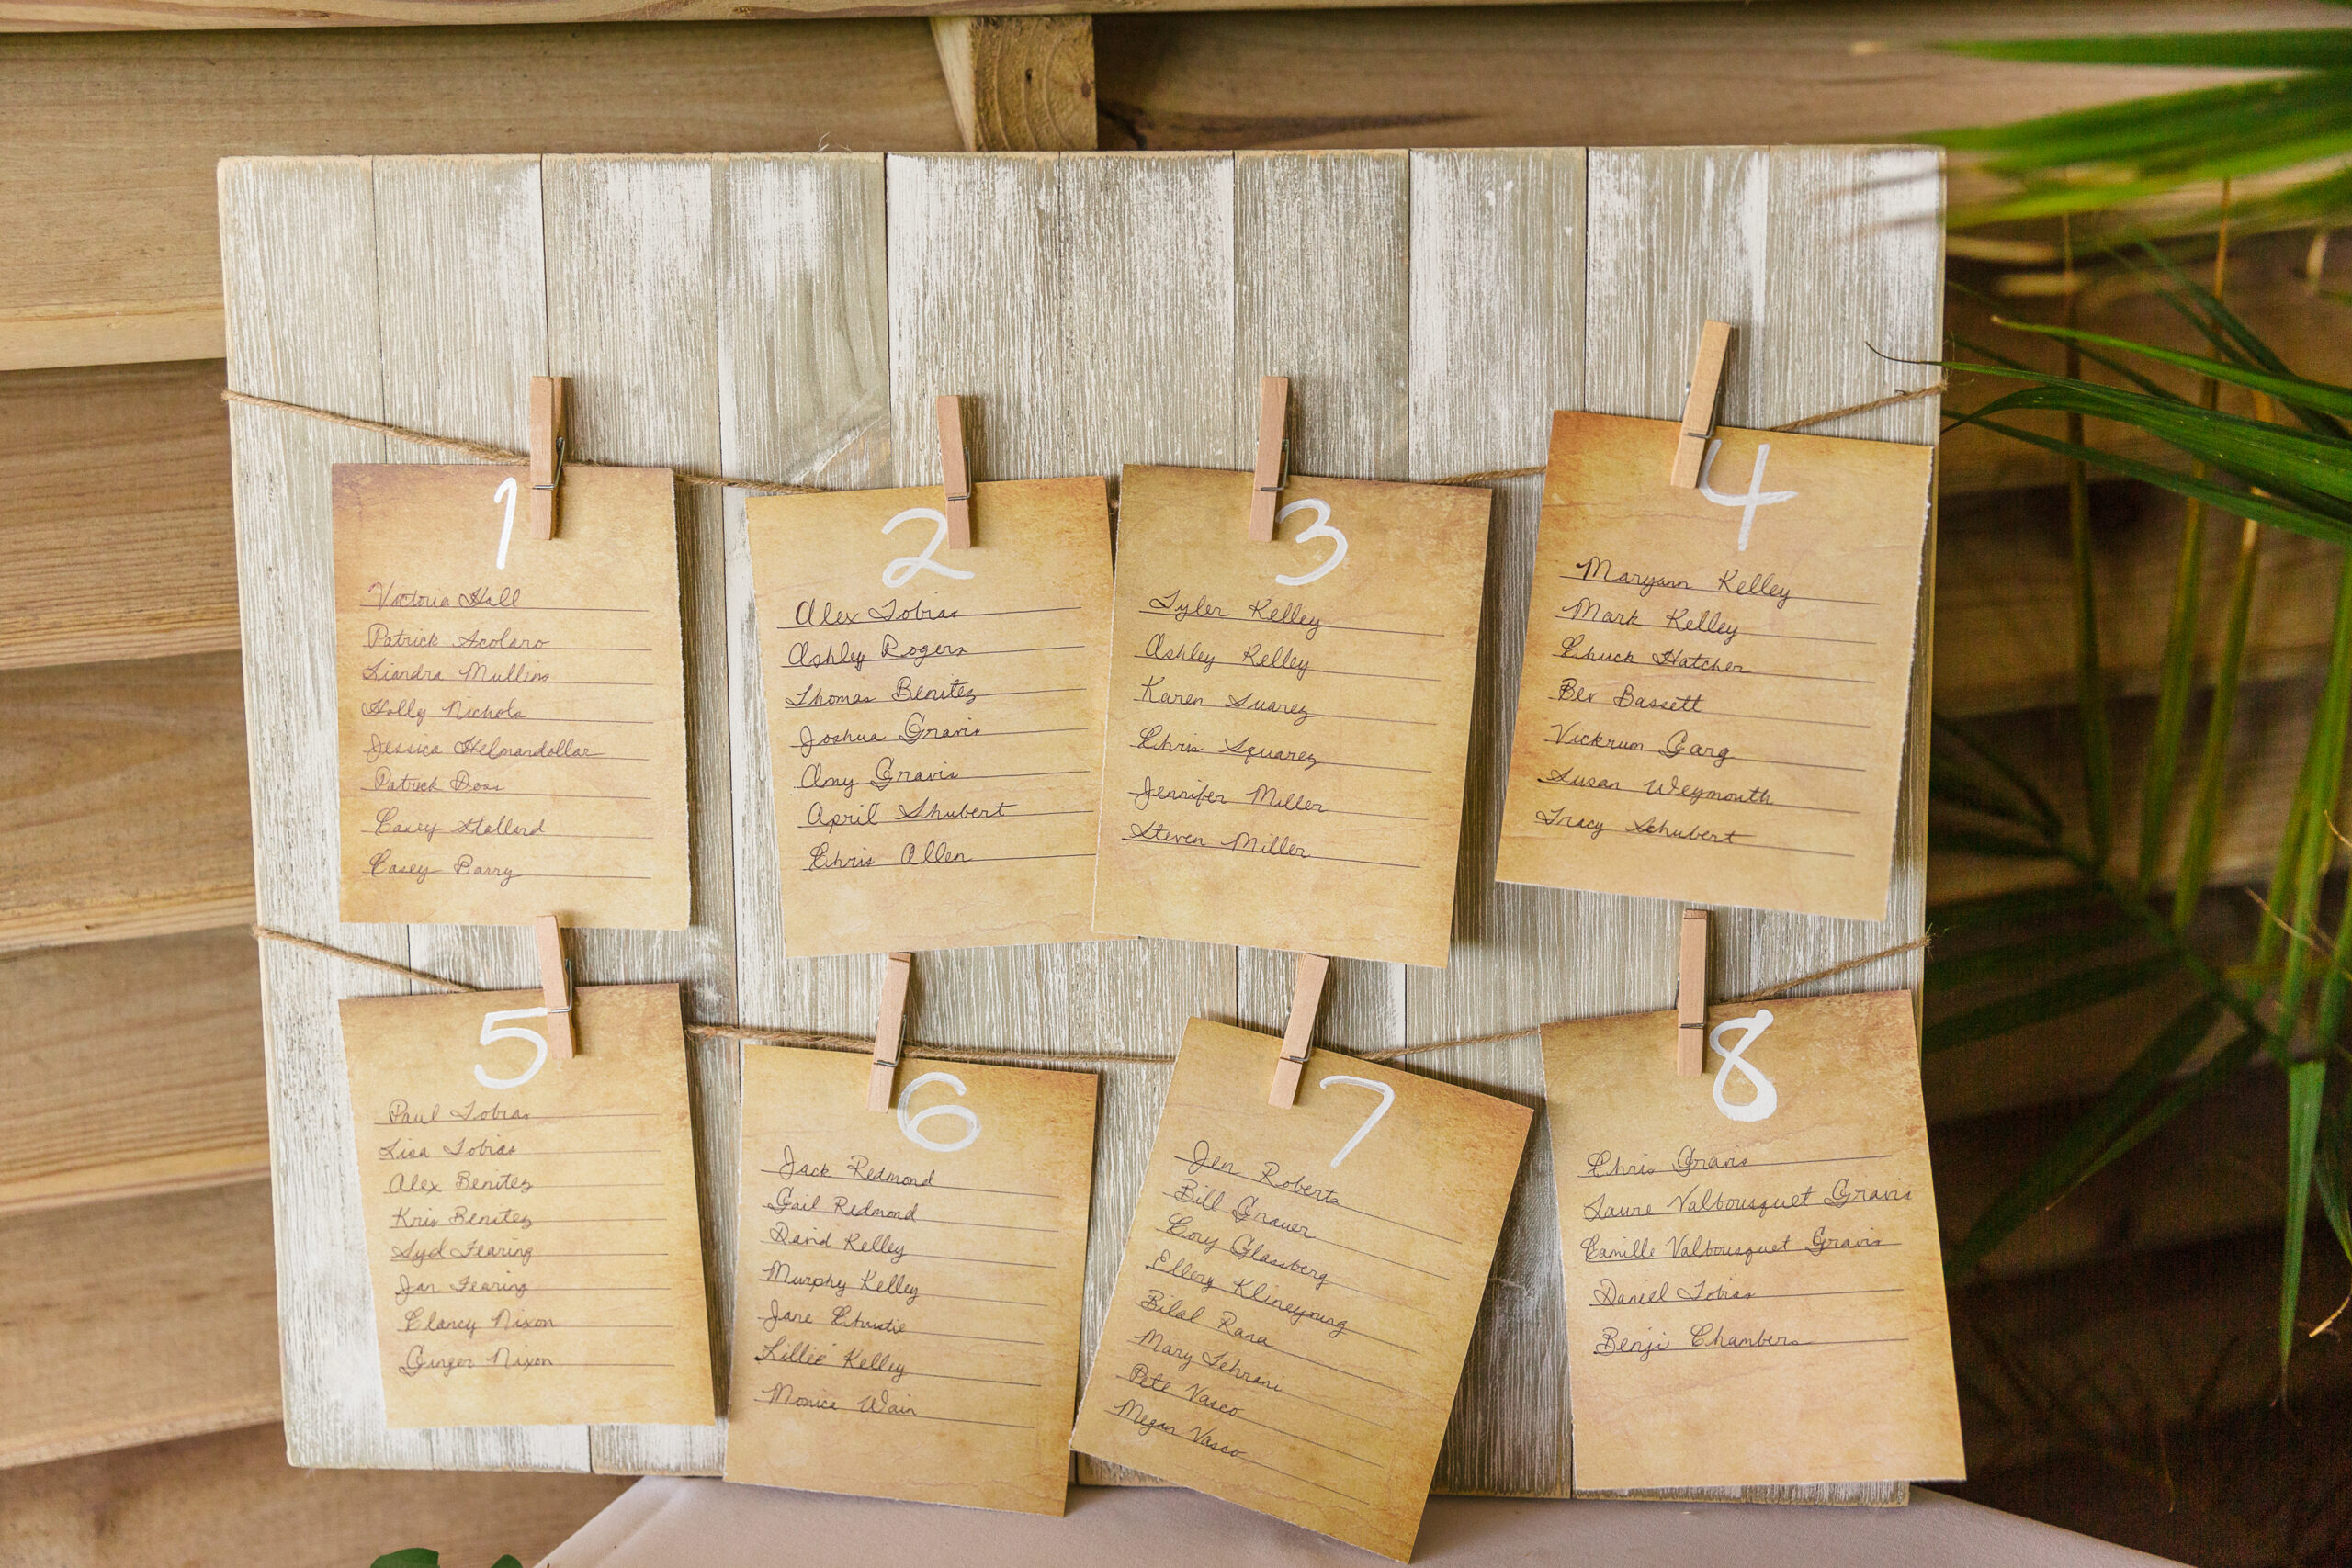 1
Victoria Hall
Patrick Scolaro
Liandra Mullins
Holly Nichols
Jessica Helmandollar
Patrick Doss
Casey Stallard
Casey Barry
2
Alex Tobias
Ashley Rogers
Thomas Benitez
Joshua Gravis
Amy Gravis
April Shubert
Chris Allen
3
Tyler Kelley
Ashley Kelley
Karen Suarez
Chris Squarez
Jennifer Miller
Steven Miller
4
Maryann Kelley
Mark Kelley
Chuck Hatcher
Bev Bassett
Vickrum Garg
Susan Weymouth
Tracy Schubert
5
Paul Tobias
Lisa Tobias
Alex Benitez
Kris Benitez
Syd Fearing
Jan Fearing
Clancy Nixon
Ginger Nixon
6
Jack Redmond
Gail Redmond
David Kelley
Murphy Kelley
Jane Christie
Lillie Kelley
Monica Wain
7
Jen Roberts
Bill Grauer
Cory Glassberg
Ellery Klineyoung
Bilal Rana
Mary Tehrani
Pete Vasco
Megan Vasco
8
Chris Gravis
Laure Valbousquet Gravis
Camille Valbousquet Gravis
Daniel Tobias
Benji Chambers